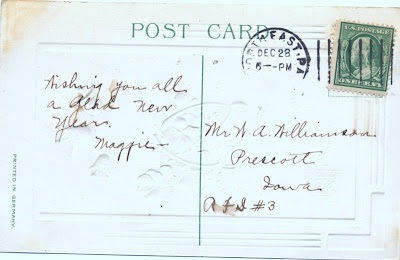 POST CARD
NORTH EAST, PA.
DEC 28
6--PM
U.S. POSTAGE
ONE CENT
Wishing you all
a glad New
Years.
Maggie
Mr W. A. Williamson
Prescott
Iowa
R F D #3
PRINTED IN GERMANY.